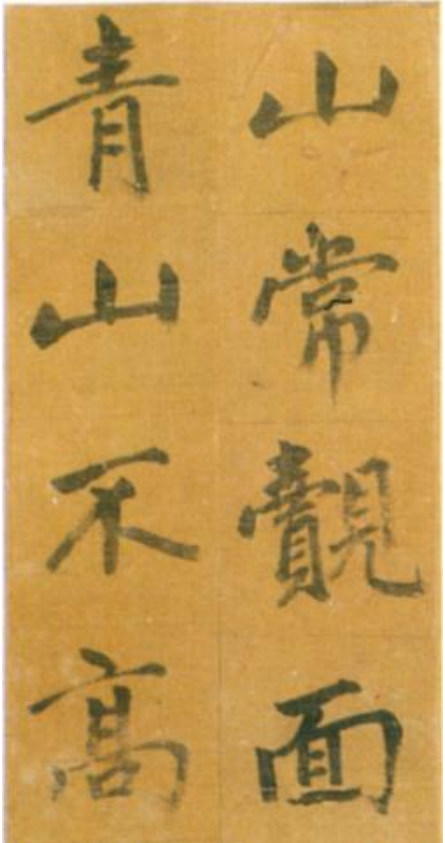 山常覿面
青山不高